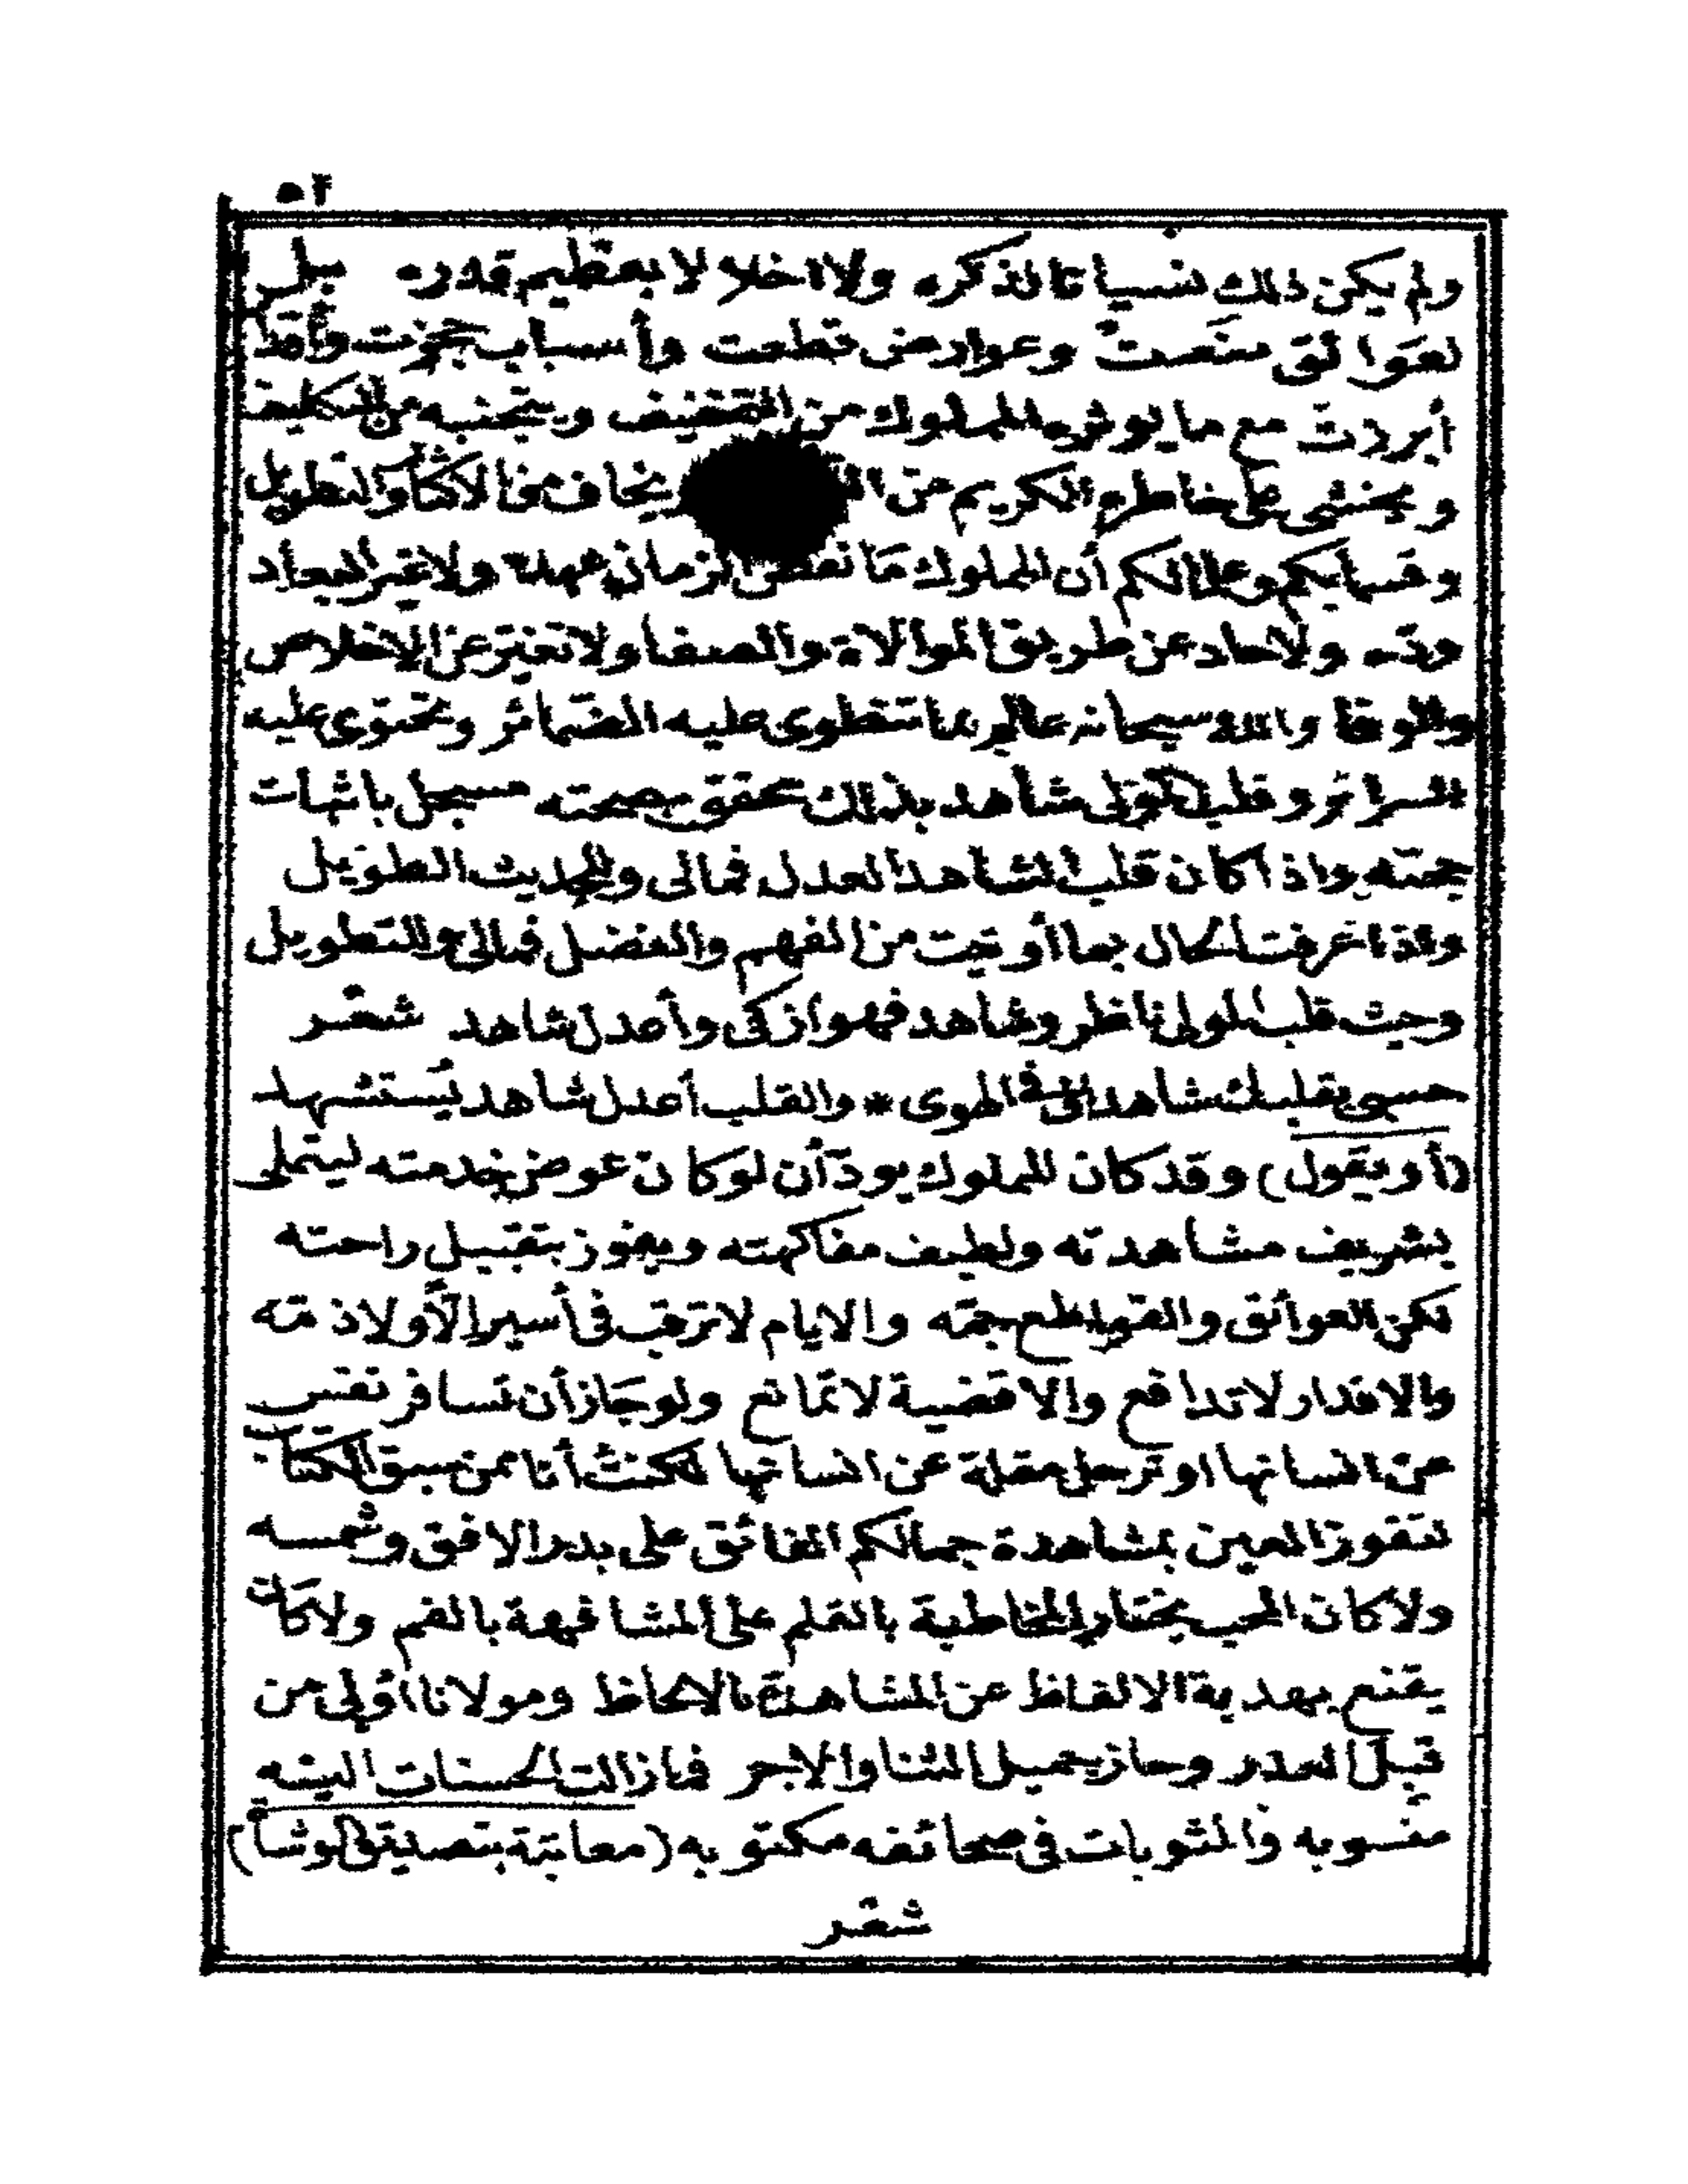 ٥٢
ولم يكن ذلك نسيانا لذكره ولا اخلالا بعظيم قدره بل
لعوائق منعت وعوارض قطعت وأسباب حجزت وأقدار
أبرزت مع ما يوثره المملوك من التخفيف ويتجنبه من التكليف
ويخشى على خاطره الكريم من ويخاف من الاكثار والتطويل
وقسما بكم وعلائكم أن المملوك ما نقض الزمان عهده ولا غير البعاد
وده ولا حاد عن طريق الموالاة والصفا ولا تغير عن الاخلاص
والوفا والله سبحانه عالم بما تنطوى عليه الضمائر وتحتوى عليه
السرائر وقلب المولى شاهد بذلك محقق بصحته مسجل باثبات
حجته واذا كان قلب الشاهد العدل فمالى وللحديث الطويل
واذا عرفت الحال بما أوتيت من الفهم والفضل فمالى وللتطويل
وحيث قلب المولى ناظر وشاهد فهو ازكى وأعدل شاهد شعر
حسبى بقلبك شاهدا لى فى الهوى * والقلب أعدل شاهد يستشهد
(أو يقول) وقد كان المملوك يود أن لو كان عوض خدمته ليتملى
بشريف مشاهدته ولطيف مفاكهته ويفوز بتقبيل راحته
لكن العوائق والقواطع جمه والايام لا ترقب فى أسير الا ولا ذمه
والاقدار لا تدافع والاقضية لا تمانع ولو جاز أن تسافر نفس
عن انسانها او ترحل مقلة عن انسانها لكنت أنا ممن سبق الكتاب
لتفوز العين بمشاهدة جمالكم الفائق على بدر الافق وشمسه
ولا كان المحب يختار المخاطبة بالقلم على المشافهة بالفم ولا كان
يقنع بهدية الالفاظ عن المشاهدة بالالحاظ ومولانا أولى من
قبل العذر وحاز جميل الثنا والاجر فمازالت الحسنات اليه
منسوبه والمثوبات فى صحائفه مكتوبه (معاتبة بتصديق الوشاة)
شعر